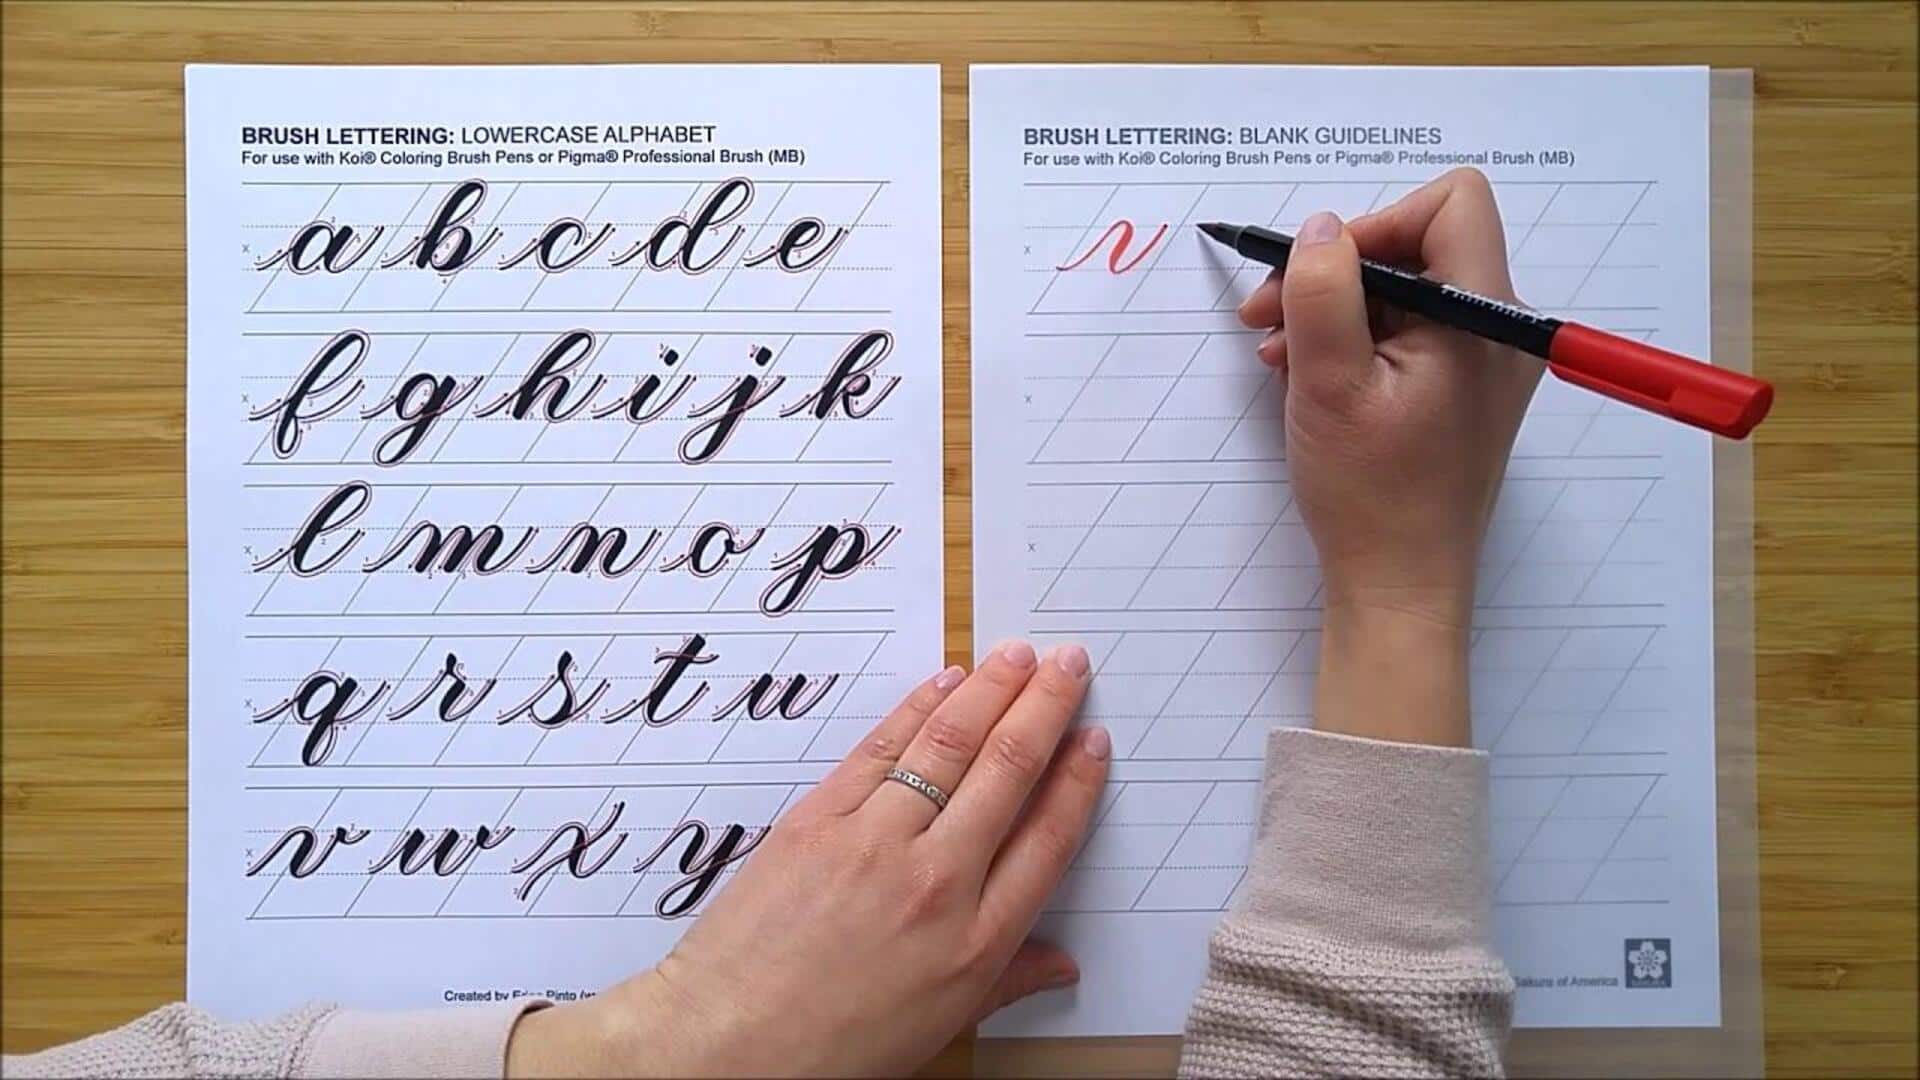 BRUSH LETTERING: LOWERCASE ALPHABET
For use with Koi® Coloring Brush Pens or Pigma® Professional Brush (MB)
a b c d e
x
f g h i j k
x
l m n o p
x
q r s t u
x
v w x y
x
Created by Erica Pinto
BRUSH LETTERING: BLANK GUIDELINES
For use with Koi® Coloring Brush Pens or Pigma® Professional Brush (MB)
x
v
x
x
Sakura of America
SAKURA